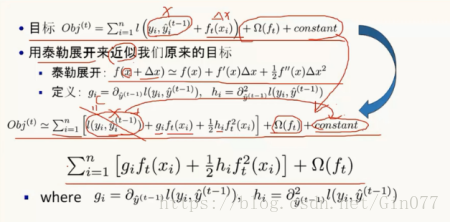 Δx
x
• 目标 Obj^{(t)} = ∑_{i=1}^{n} l(y_i, ŷ_i^{(t-1)} + f_t(x_i)) + Ω(f_t) + constant
• 用泰勒展开来近似我们原来的目标
• 泰勒展开: f(x + Δx) ≃ f(x) + f′(x)Δx + ½f″(x)Δx²
• 定义: g_i = ∂_{ŷ^{(t-1)}} l(y_i, ŷ^{(t-1)}), h_i = ∂²_{ŷ^{(t-1)}} l(y_i, ŷ^{(t-1)})
Obj^{(t)} ≃ ∑_{i=1}^{n} [l(y_i, ŷ_i^{(t-1)}) + g_i f_t(x_i) + ½h_i f_t²(x_i)] + Ω(f_t) + constant
∑_{i=1}^{n} [g_i f_t(x_i) + ½h_i f_t²(x_i)] + Ω(f_t)
• where g_i = ∂_{ŷ^{(t-1)}} l(y_i, ŷ^{(t-1)}), h_i = ∂²_{ŷ^{(t-1)}} l(y_i, ŷ^{(t-1)})
https://blog.csdn.net/Gin077